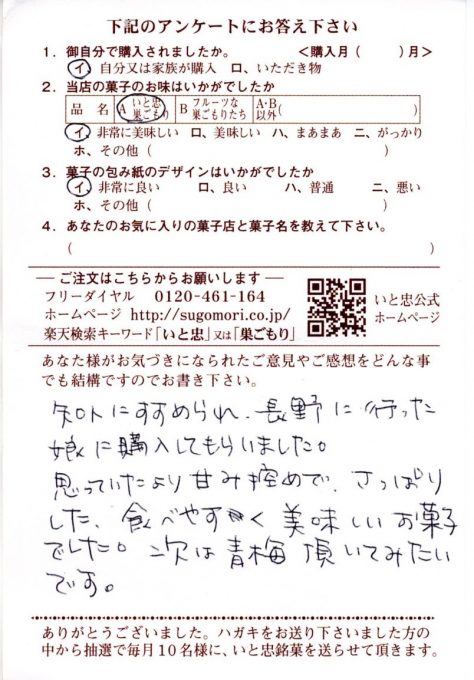 下記のアンケートにお答え下さい
1．御自分で購入されましたか。　＜購入月（　　）月＞
イ、自分又は家族が購入　ロ、いただき物
2．当店の菓子のお味はいかがでしたか
品　名　A いと忠 巣ごもり　B フルーツな 巣ごもりたち　A・B 以外（　　　）
イ、非常に美味しい　ロ、美味しい　ハ、まあまあ　ニ、がっかり
ホ、その他（
3．菓子の包み紙のデザインはいかがでしたか
イ、非常に良い　ロ、良い　ハ、普通　ニ、悪い
ホ、その他（
4．あなたのお気に入りの菓子店と菓子名を教えて下さい。
（　　　）
― ご注文はこちらからお願いします ―
フリーダイヤル　0120-461-164
ホームページ　http://sugomori.co.jp/
楽天検索キーワード「いと忠」又は「巣ごもり」
いと忠公式
ホームページ
あなた様がお気づきになられたご意見やご感想をどんな事
でも結構ですのでお書き下さい。
知人にすすめられ、長野に行った
娘に購入してもらいました。
思っていたより甘み控めで、さっぱり
した、食べやすく美味しいお菓子
でした。次は青梅頂いてみたい
です。
ありがとうございました。ハガキをお送り下さいました方の
中から抽選で毎月10名様に、いと忠銘菓を送らせて頂きます。